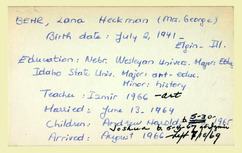 BEHR, Lana Heckman (Mrs. George)
Birth date: July 2, 1941 -
Elgin - Ill.
Education: Nebr. Wesleyan Univers. Major: Educ
Idaho State Univ. Major: art-educ.
Minor: history
Teacher: Izmir 1966 - art
Married: June 13, 1964
Children: Andrew Harold b 5-30-1965
Joshua b.
Arrived: August 1966